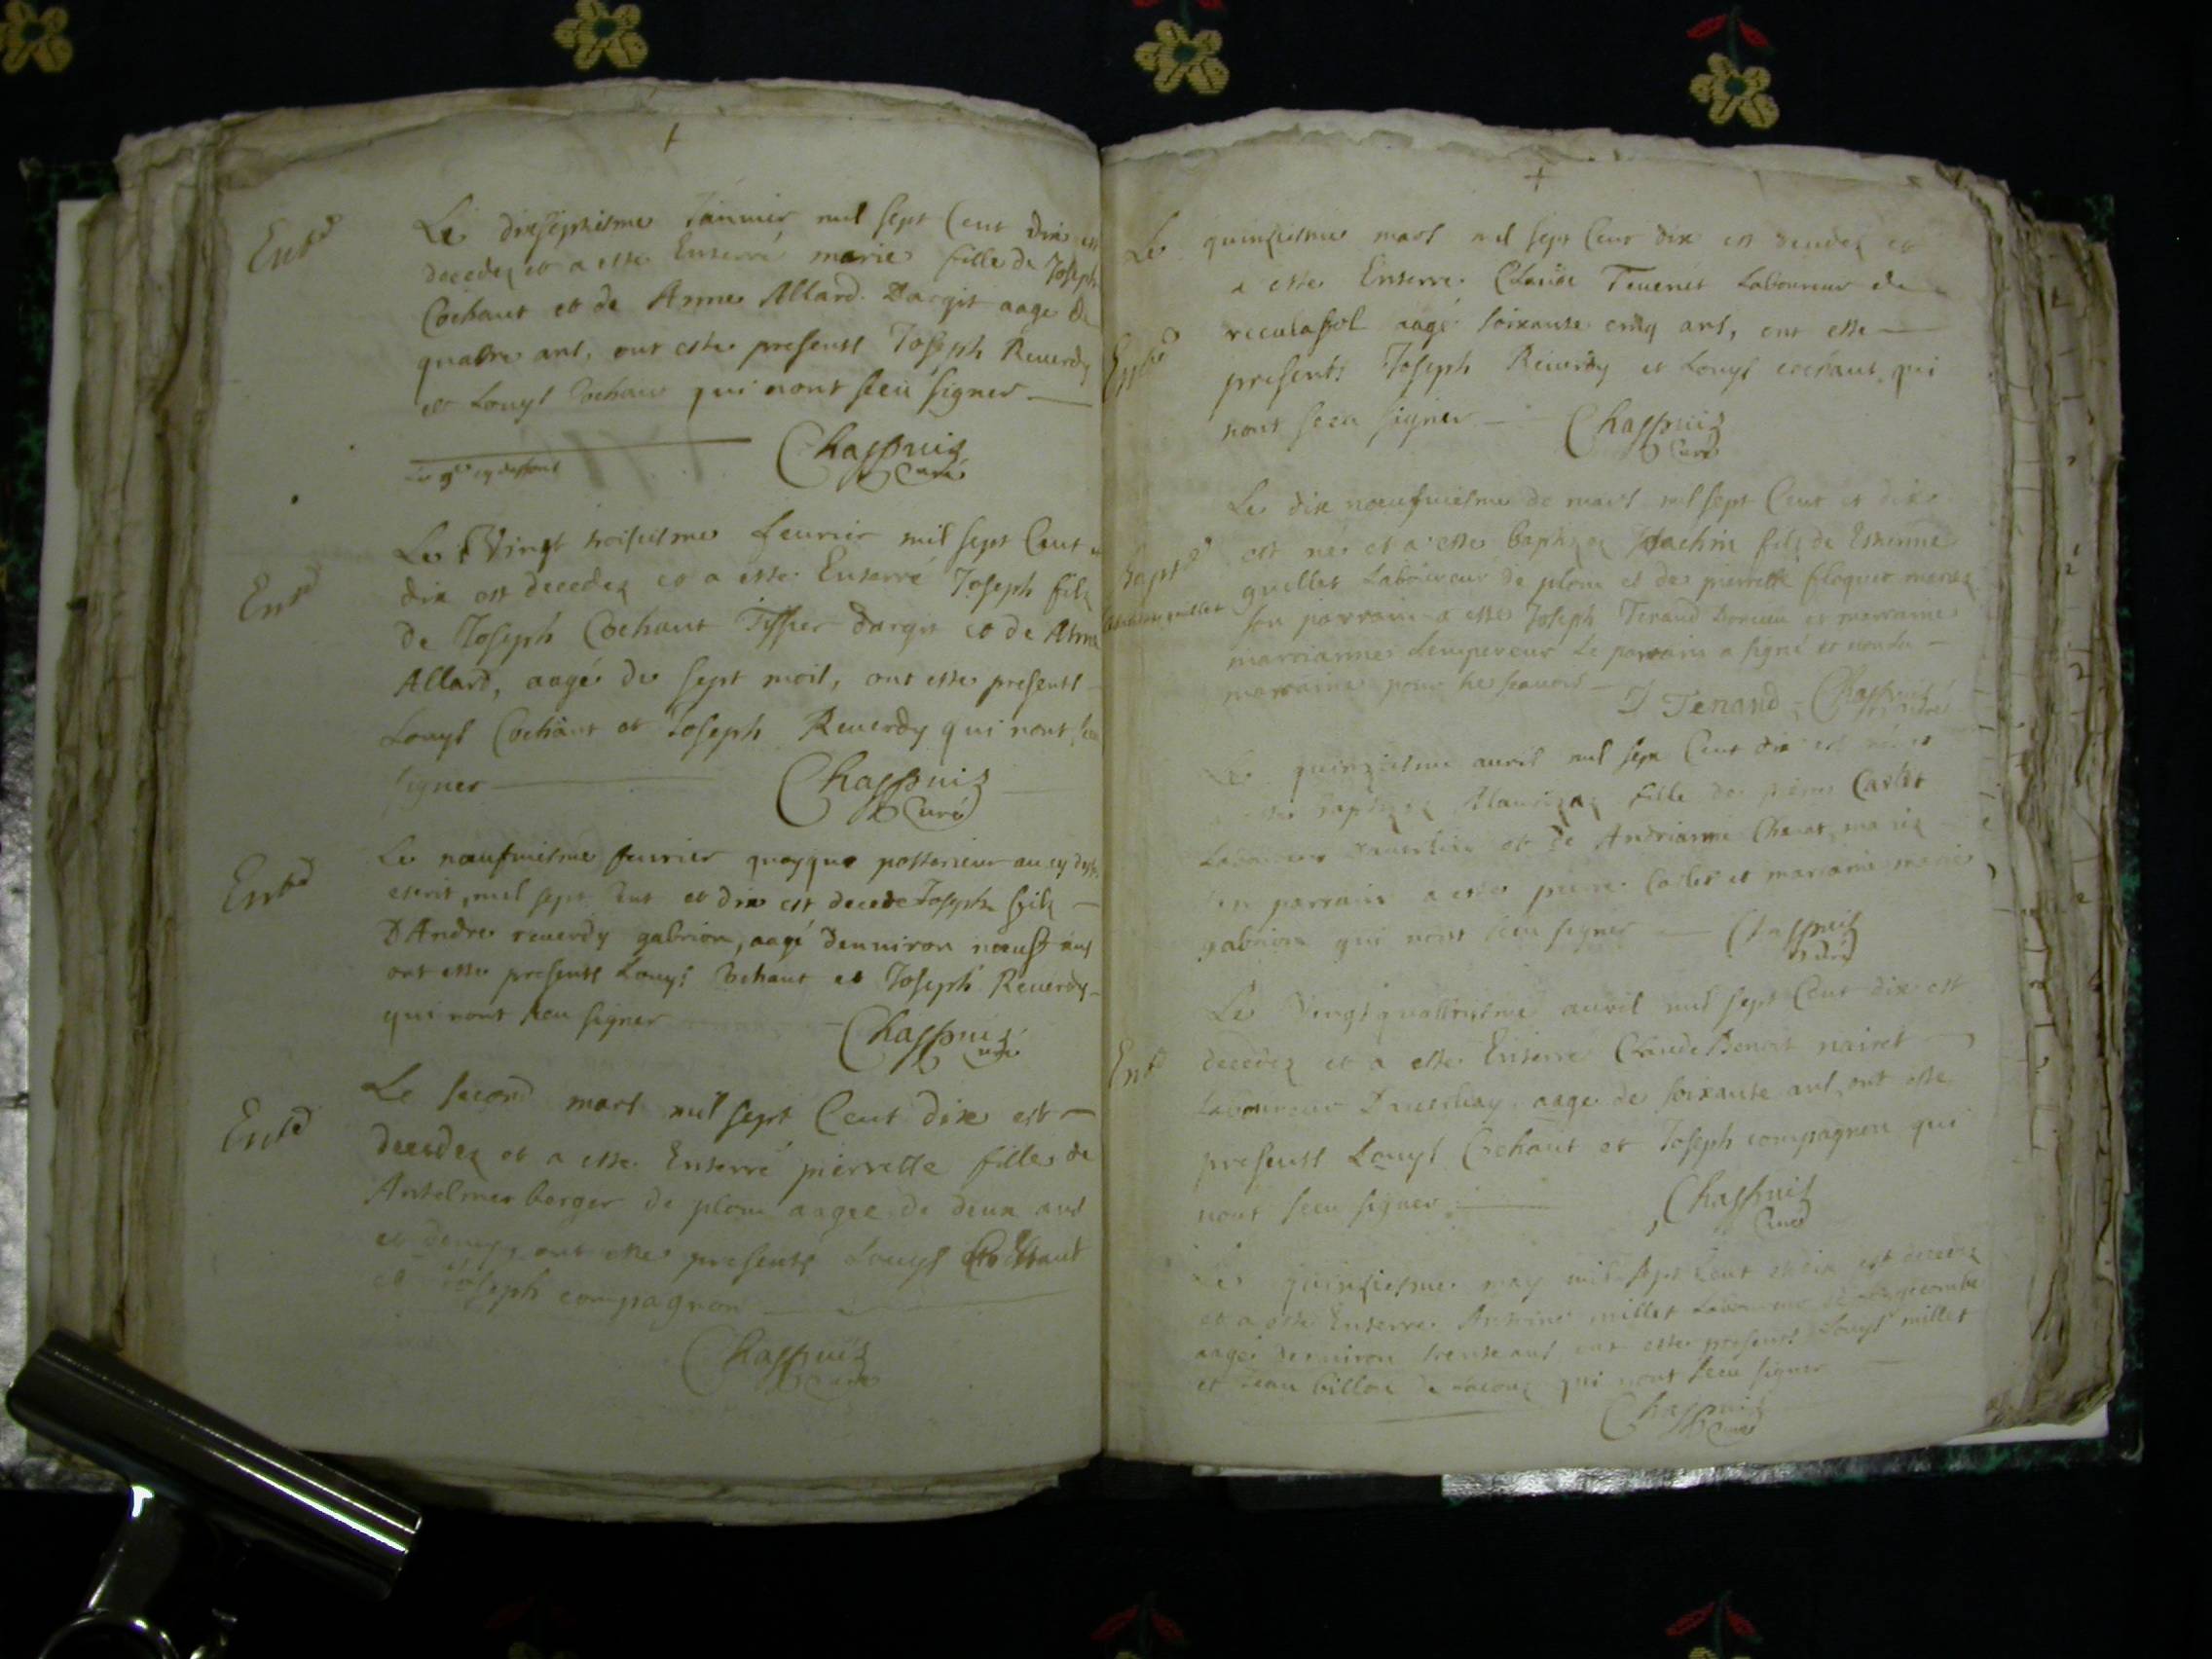 Ent.d
Le dixseptiesme Januier mil sept Cent dix est
decedez et a este Enterré marie fille de Joseph
Cochaut et de Anne Allard Dargit aage de
quatre ans, ont este presents Joseph Reuerdy
et Louys Cochaut qui nont sceu signer
Chappuiz
Curé
cy dessous
Ent.d
Le Vingt troisiesme feurier mil sept Cent
dix est decedez et a este Enterré Joseph filz
de Joseph Cochaut Tissier dargit et de Anne
Allard, aagé de sept mois, ont este presents
Louys Cochaut et Joseph Reuerdy qui nont sceu
signer
Chappuiz
Curé
Ent.d
Le neufuiesme feurier quoyque posterieur au cy dess.
escrit, mil sept Cent et dix est decede Joseph filz
D'Andre reuerdy gabrion, aagé denuiron neuf ans
ont este presents Louys Cochaut et Joseph Reuerdy
qui nont sceu signer
Chappuiz
Curé
Ent.d
Le second mars mil sept Cent dix est
decedez et a este Enterré pierrette fille de
Antelme berger de plom aagee de deux ans
et demy, ont este presents Louys Cochaut
et Joseph compagnon
Chappuiz
Curé
Le quinziesme mars mil sept Cent dix est decedez et
a este Enterré Claude Teuenet Laboureur de
reculafol aagé soixante cinq ans, ont este
presents Joseph Reuerdy et Louys cochaut qui
nont sceu signer
Chappuiz
Curé
Le dix neufuiesme de mars mil sept Cent et dix
Bapt.e
est né et a este baptizez Joachin filz de Estienne
quillet Laboureur de plom et de pierrette floquet mariez
son parrain a este Joseph Tenand et marraine
marrianne Lempereur Le parrain a signé et non la
marraine pour ne scauoir
J Tenand
Chappuiz
Le quinziesme auril mil sept Cent dix est né et
este baptizez fille de pierre Carlet
Laboureur et de Andrianne mariez
son parrain a este pierre Carlet et marraine marie
gabrion qui nont sceu signer
Chappuiz
Curé
Le Vingt quatriesme auril mil sept Cent dix est
Ent.d
decedez et a este Enterré Claude Benoit nairet
Laboureur aage de soixante ans, ont este
presents Louys Cochaut et Joseph compagnon qui
nont sceu signer
Chappuiz
Curé
Le quinziesme may mil sept Cent et dix est decedez
et a este Enterré Antoine millet Laboureur de
aagé denuiron trente ans ont este presents Louys millet
et Jean billon qui nont sceu signer
Chappuiz
Curé